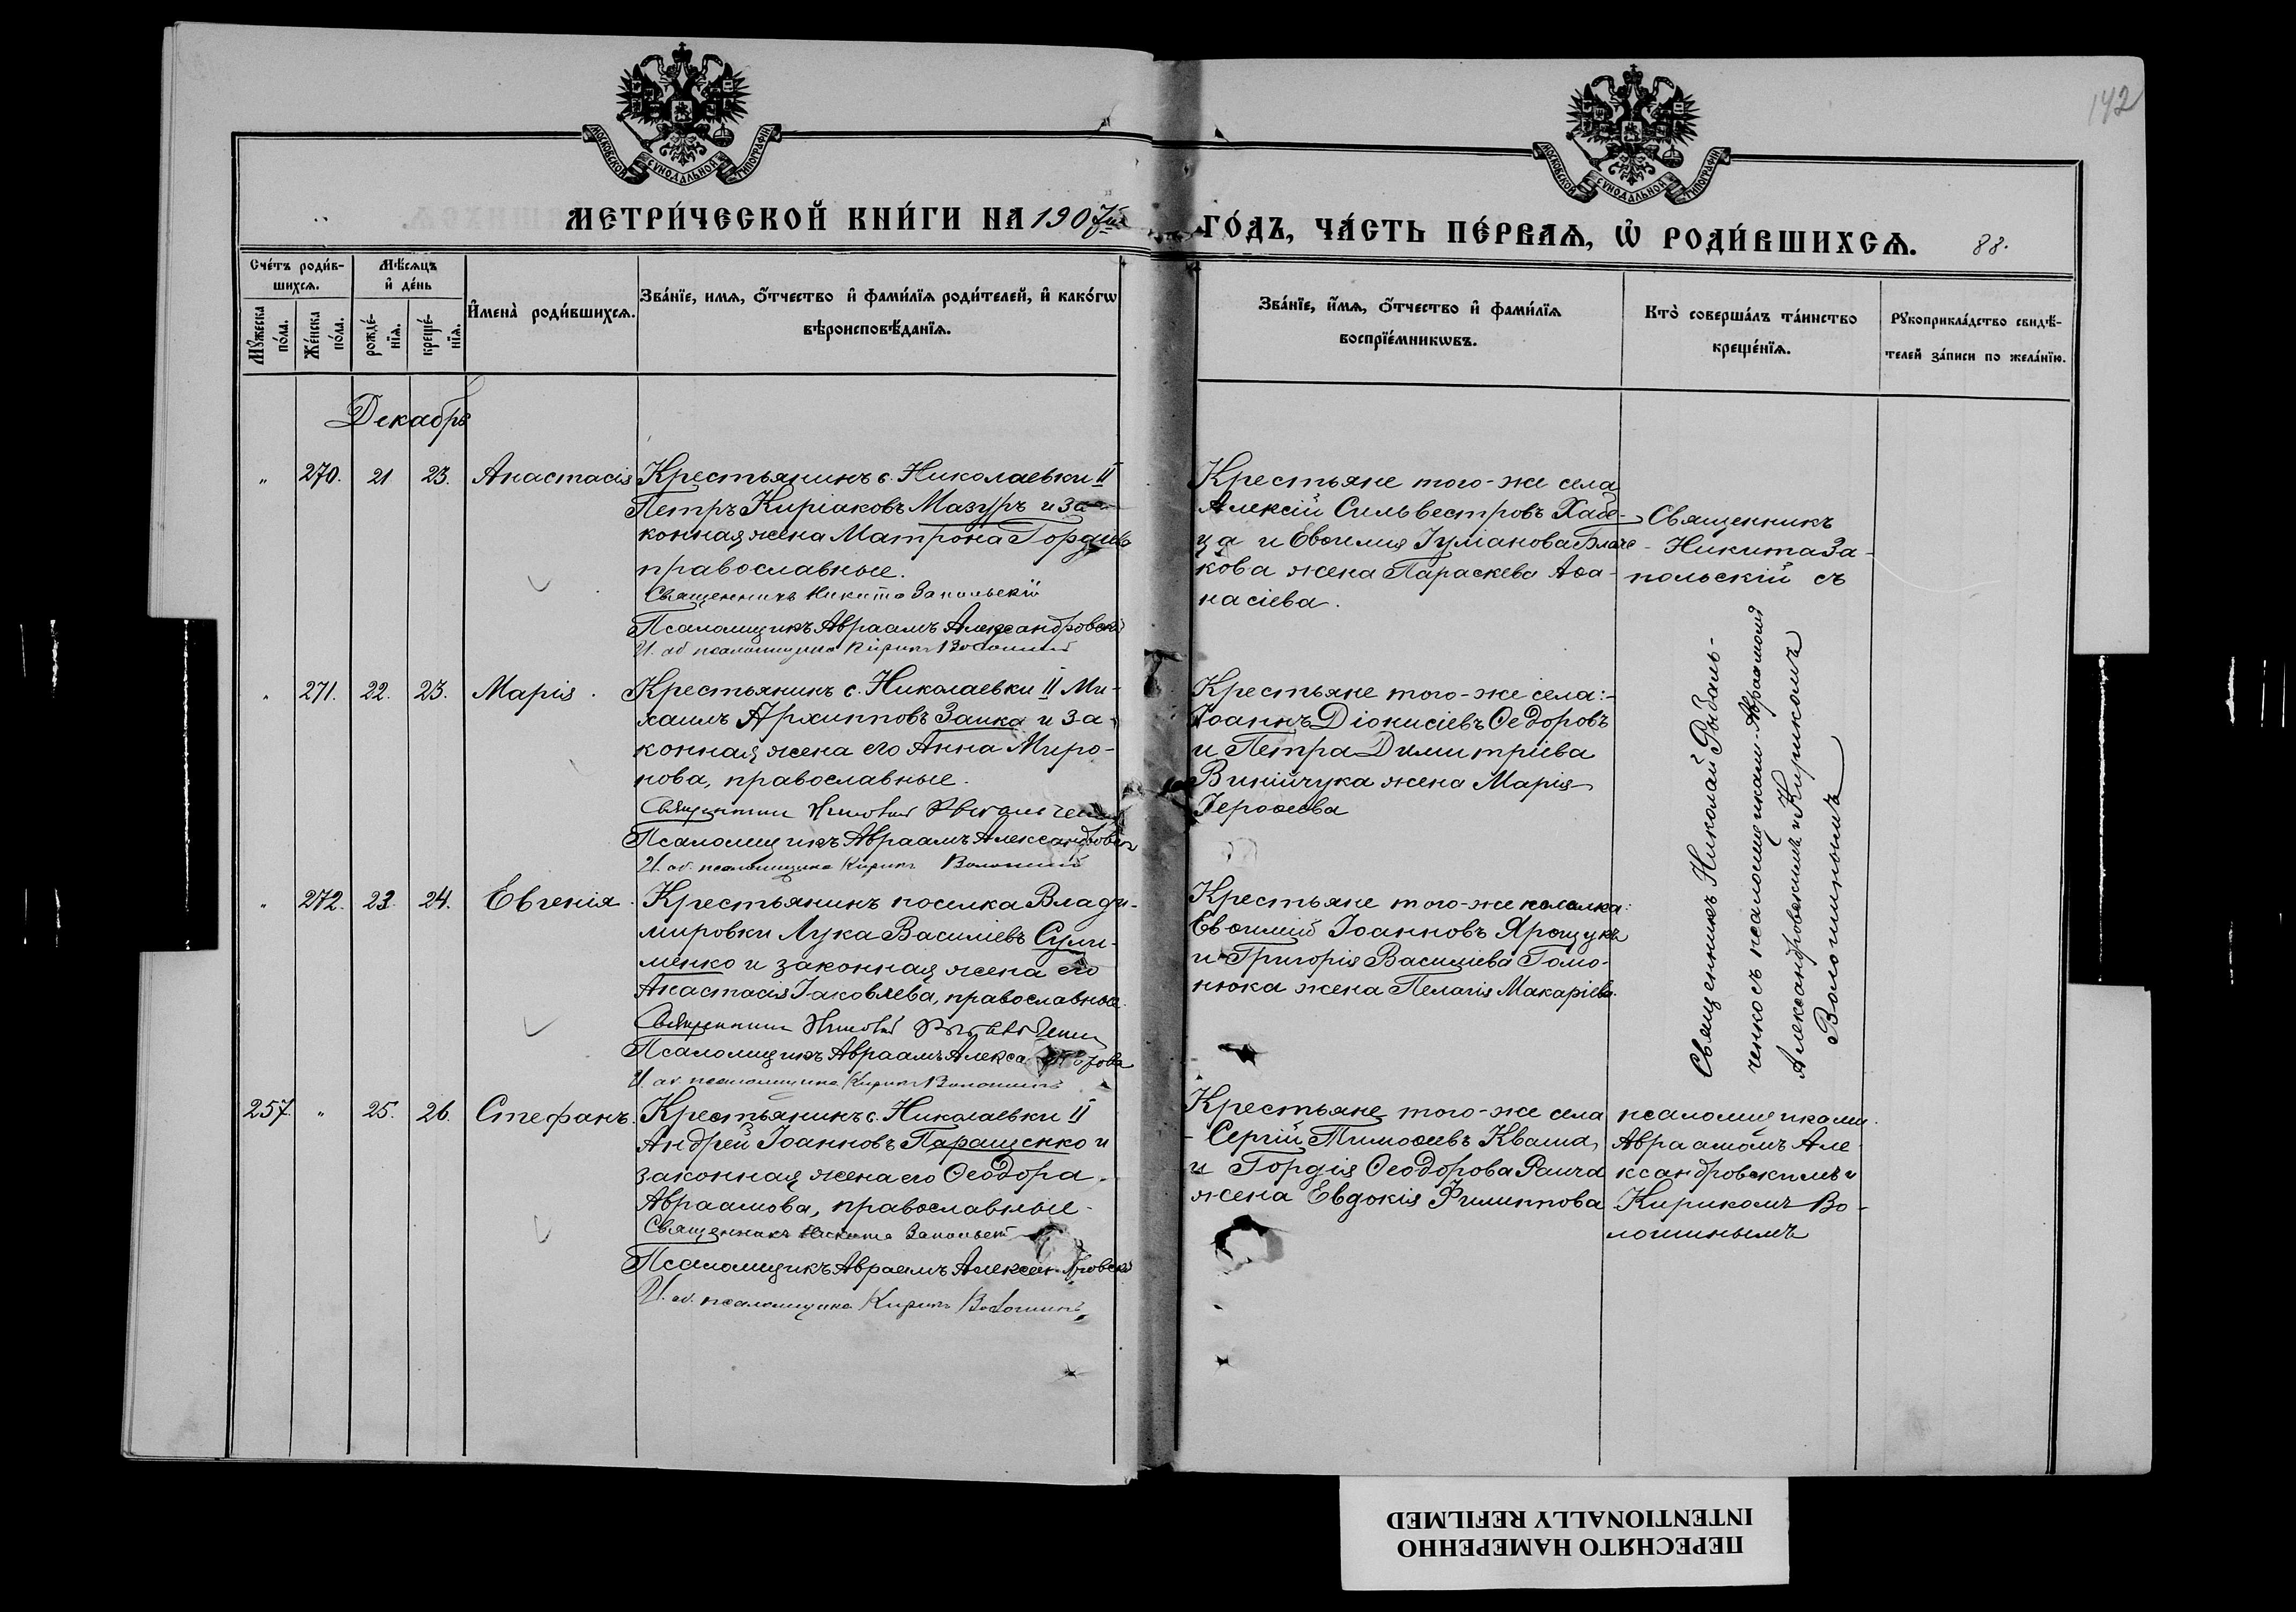 142
МОСКОВСКОЙ СУНОДАЛЬНОЙ ТИПОГРАФІИ
МОСКОВСКОЙ СУНОДАЛЬНОЙ ТИПОГРАФІИ
МЕТРИ́ЧЕСКОЙ КНИ́ГИ НА 1907й
ГО́ДЪ, ЧА́СТЬ ПЕ́РВАѦ, Ѡ҆ РОДИ́ВШИХСѦ. 88.
Сче́тъ роди́в-
шихсѧ.
Мꙋ́жеска по́ла.
Же́нска по́ла.
Мѣ́сѧцъ
и҆ де́нь
рожде́-
нїѧ.
креще́-
нїѧ.
И҆мена̀ роди́вшихсѧ.
Зва́нїе, имѧ, ѻ҆́тчество и҆ фами́лїѧ роди́телей, и҆ како́гѡ
вѣроисповѣ́данїѧ.
Зва́нїе, и҆́мѧ, ѻ҆́тчество и҆ фами́лїѧ
воспрїе́мникѡвъ.
Кто̀ соверша́лъ та́инство
креще́нїѧ.
Рꙋкоприкла́дство свидѣ́-
телей за́писи по жела́нїю.
Декабрь
" 270. 21 23. Анастасія
Крестьянинъ с. Николаевки II
Петръ Киріаковъ Мазуръ и за-
конная жена Матрона Гордіева
православные.
Священникъ Никита Запольскій
Псаломщикъ Авраамъ Александровскій
И. об. псаломщика Кирикъ Волошинъ
Крестьяне того-же села
Алексій Сильвестровъ Хаб-
ца и Евѳимія Іуліанова
кова жена Параскева Аѳа-
насіева.
Священникъ
Никита За-
польскій съ
" 271. 22. 23. Марія.
Крестьянинъ с. Николаевки II Ми-
хаилъ Архипповъ Заика и за-
конная жена его Анна Миро-
нова, православные.
Священникъ Николай Рыбальченко
Псаломщикъ Авраамъ Александровскій
И. об. псаломщика Кирикъ Волошинъ
Крестьяне того-же села:-
Іоаннъ Діонисіевъ Ѳедоровъ
и Петра Димитріева
Винійчука жена Марія
Іероѳеева
" 272. 23. 24. Евгенія.
Крестьянинъ поселка Влади-
мировки Лука Василіевъ Сули-
менко и законная жена его
Анастасія Іаковлева, православные.
Священникъ Николай Рыбальченко
Псаломщикъ Авраамъ Александровскій
И. об. псаломщика Кирикъ Волошинъ
Крестьяне того-же поселка:
Евѳимій Іоанновъ Ярощукъ
и Григорія Василіева Гомо-
нюка жена Пелагія Макаріева.
Священникъ Николай Рыбаль-
ченко съ псаломщиками Авраамомъ
Александровскимъ и Кирикомъ
Волошинымъ
257. " 25. 26. Стефанъ.
Крестьянинъ с. Николаевки II
Андрей Іоанновъ Паращенко и
законная жена его Ѳеодора
Авраамова, православные.
Священникъ Никита Запольскій
Псаломщикъ Авраамъ Александровскій
И. об. псаломщика Кирикъ Волошинъ
Крестьяне того-же села
- Сергій Тимоѳеевъ Кваша,
и Гордія Ѳеодорова Раича
жена Евдокія Филиппова
псаломщиками
Авраамомъ Але-
ксандровскимъ и
Кирикомъ Во-
лошинымъ
ПЕРЕСНЯТО НАМЕРЕННО
INTENTIONALLY REFILMED